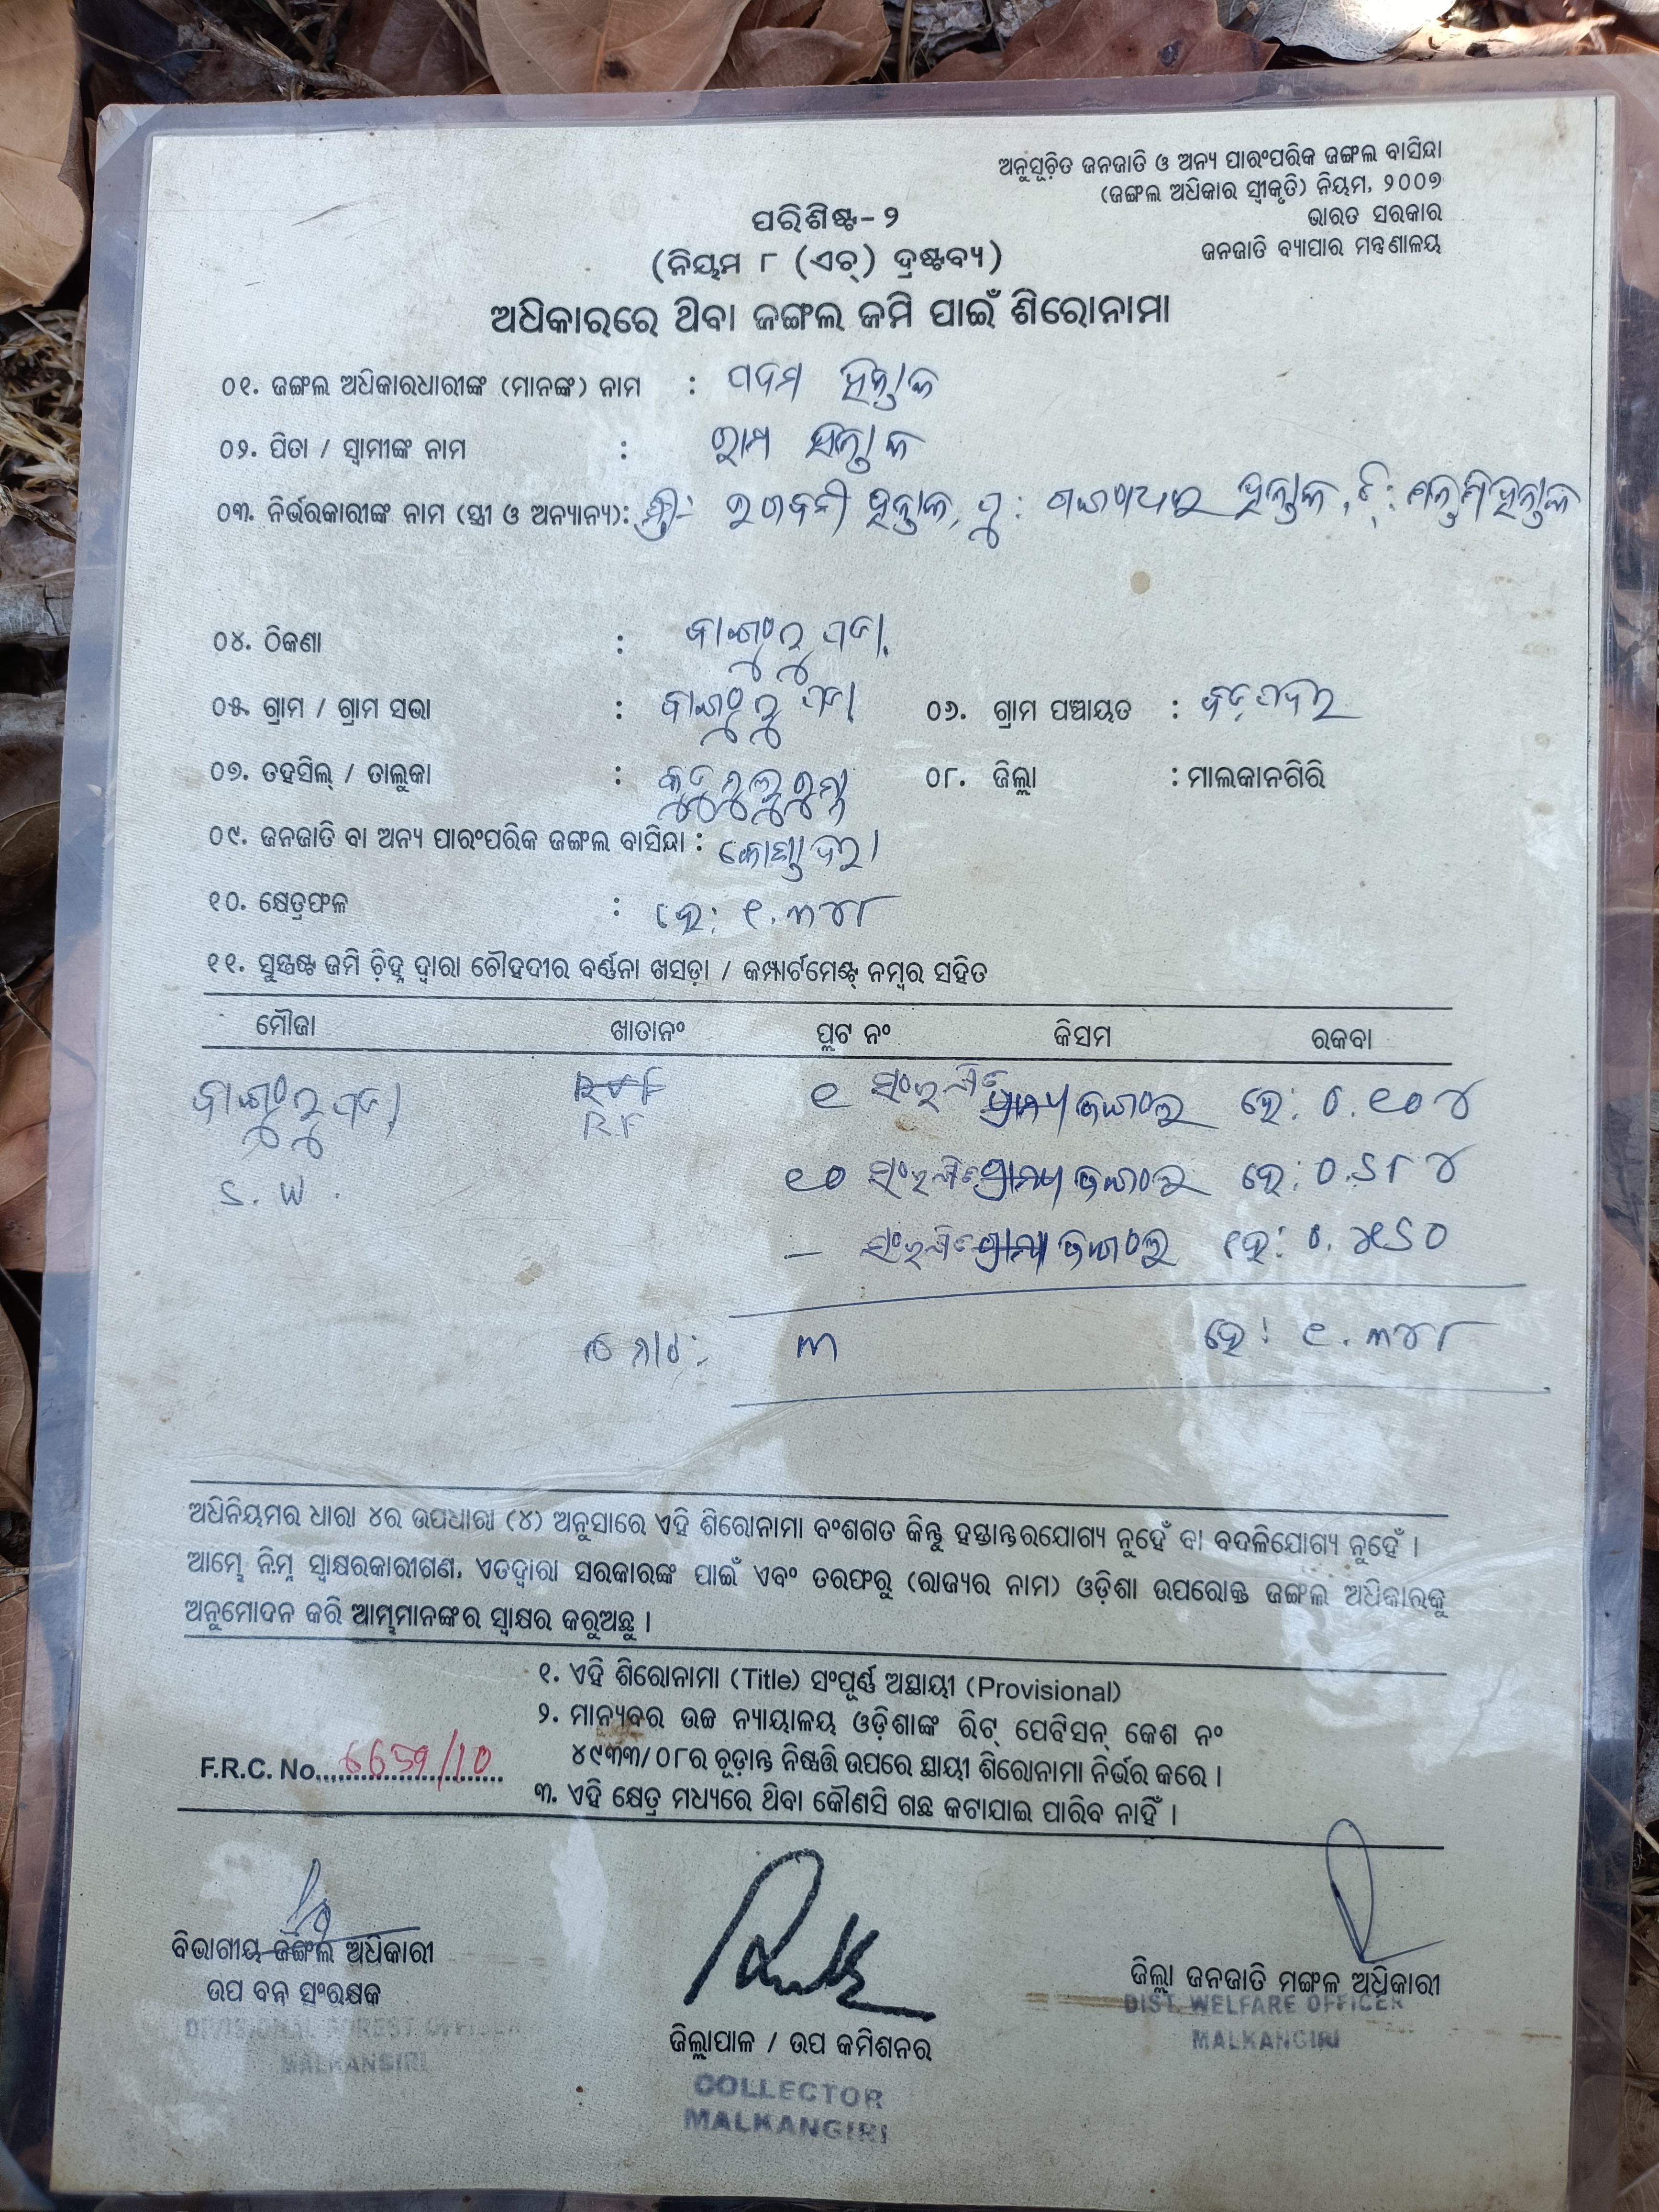 ଅନୁସୂଚିତ ଜନଜାତି ଓ ଅନ୍ୟ ପାରଂପରିକ ଜଙ୍ଗଲ ବାସିନ୍ଦା
(ଜଙ୍ଗଲ ଅଧିକାର ସ୍ୱୀକୃତି) ନିୟମ, ୨୦୦୭
ଭାରତ ସରକାର
ଜନଜାତି ବ୍ୟାପାର ମନ୍ତ୍ରଣାଳୟ
ପରିଶିଷ୍ଟ-୨
(ନିୟମ ୮ (ଏଚ୍) ଦ୍ରଷ୍ଟବ୍ୟ)
ଅଧିକାରରେ ଥିବା ଜଙ୍ଗଲ ଜମି ପାଇଁ ଶିରୋନାମା
୦୧. ଜଙ୍ଗଲ ଅଧିକାରଧାରୀଙ୍କ (ମାନଙ୍କ) ନାମ : ପଦମ ହନ୍ତାଳ
୦୨. ପିତା / ସ୍ୱାମୀଙ୍କ ନାମ : ରାମ ହନ୍ତାଳ
୦୩. ନିର୍ଭରକାରୀଙ୍କ ନାମ (ସ୍ତ୍ରୀ ଓ ଅନ୍ୟାନ୍ୟ): ସ୍ତ୍ରୀ: ହନ୍ତାଳ, ପୁ: ହନ୍ତାଳ, ହନ୍ତାଳ
୦୪. ଠିକଣା :
୦୫. ଗ୍ରାମ / ଗ୍ରାମ ସଭା : ୦୬. ଗ୍ରାମ ପଞ୍ଚାୟତ : ବଡ଼ପଦର
୦୭. ତହସିଲ୍ / ତାଲୁକା : କୁଡୁମୁଲୁଗୁମ୍ମା ୦୮. ଜିଲ୍ଲା : ମାଲକାନଗିରି
୦୯. ଜନଜାତି ବା ଅନ୍ୟ ପାରଂପରିକ ଜଙ୍ଗଲ ବାସିନ୍ଦା :
୧୦. କ୍ଷେତ୍ରଫଳ : ହେ: ୧.୩୪୮
୧୧. ସୁସ୍ପଷ୍ଟ ଜମି ଚିହ୍ନ ଦ୍ୱାରା ଚୌହଦୀର ବର୍ଣ୍ଣନା ଖସଡ଼ା / କମ୍ପାର୍ଟମେଣ୍ଟ୍ ନମ୍ବର ସହିତ
ମୌଜା ଖାତାନଂ ପ୍ଲଟ ନଂ କିସମ ରକବା
RF ୧ ସଂରକ୍ଷିତ ଜଙ୍ଗଲ ହେ: ୦.୧୦୪
S.W. ୧୦ ସଂରକ୍ଷିତ ଜଙ୍ଗଲ ହେ: ୦.୨୮୪
– ସଂରକ୍ଷିତ ଜଙ୍ଗଲ ହେ:
ମୋଟ: ୩ ହେ: ୧.୩୪୮
ଅଧିନିୟମର ଧାରା ୪ର ଉପଧାରା (୪) ଅନୁସାରେ ଏହି ଶିରୋନାମା ବଂଶଗତ କିନ୍ତୁ ହସ୍ତାନ୍ତରଯୋଗ୍ୟ ନୁହେଁ ବା ବଦଳିଯୋଗ୍ୟ ନୁହେଁ ।
ଆମ୍ଭେ ନିମ୍ନ ସ୍ୱାକ୍ଷରକାରୀଗଣ, ଏତଦ୍ୱାରା ସରକାରଙ୍କ ପାଇଁ ଏବଂ ତରଫରୁ (ରାଜ୍ୟର ନାମ) ଓଡ଼ିଶା ଉପରୋକ୍ତ ଜଙ୍ଗଲ ଅଧିକାରକୁ
ଅନୁମୋଦନ କରି ଆମ୍ଭମାନଙ୍କର ସ୍ୱାକ୍ଷର କରୁଅଛୁ ।
୧. ଏହି ଶିରୋନାମା (Title) ସଂପୂର୍ଣ୍ଣ ଅସ୍ଥାୟୀ (Provisional)
୨. ମାନ୍ୟବର ଉଚ୍ଚ ନ୍ୟାୟାଳୟ ଓଡ଼ିଶାଙ୍କ ରିଟ୍ ପେଟିସନ୍ କେଶ ନଂ
୪୯୩୩/୦୮ର ଚୂଡ଼ାନ୍ତ ନିଷ୍ପତ୍ତି ଉପରେ ସ୍ଥାୟୀ ଶିରୋନାମା ନିର୍ଭର କରେ ।
F.R.C. No.
୩. ଏହି କ୍ଷେତ୍ର ମଧ୍ୟରେ ଥିବା କୌଣସି ଗଛ କଟାଯାଇ ପାରିବ ନାହିଁ ।
ବିଭାଗୀୟ ଜଙ୍ଗଲ ଅଧିକାରୀ
ଉପ ବନ ସଂରକ୍ଷକ
DIVISIONAL FOREST OFFICER
MALKANGIRI
ଜିଲ୍ଲାପାଳ / ଉପ କମିଶନର
COLLECTOR
MALKANGIRI
ଜିଲ୍ଲା ଜନଜାତି ମଙ୍ଗଳ ଅଧିକାରୀ
DIST. WELFARE OFFICER
MALKANGIRI